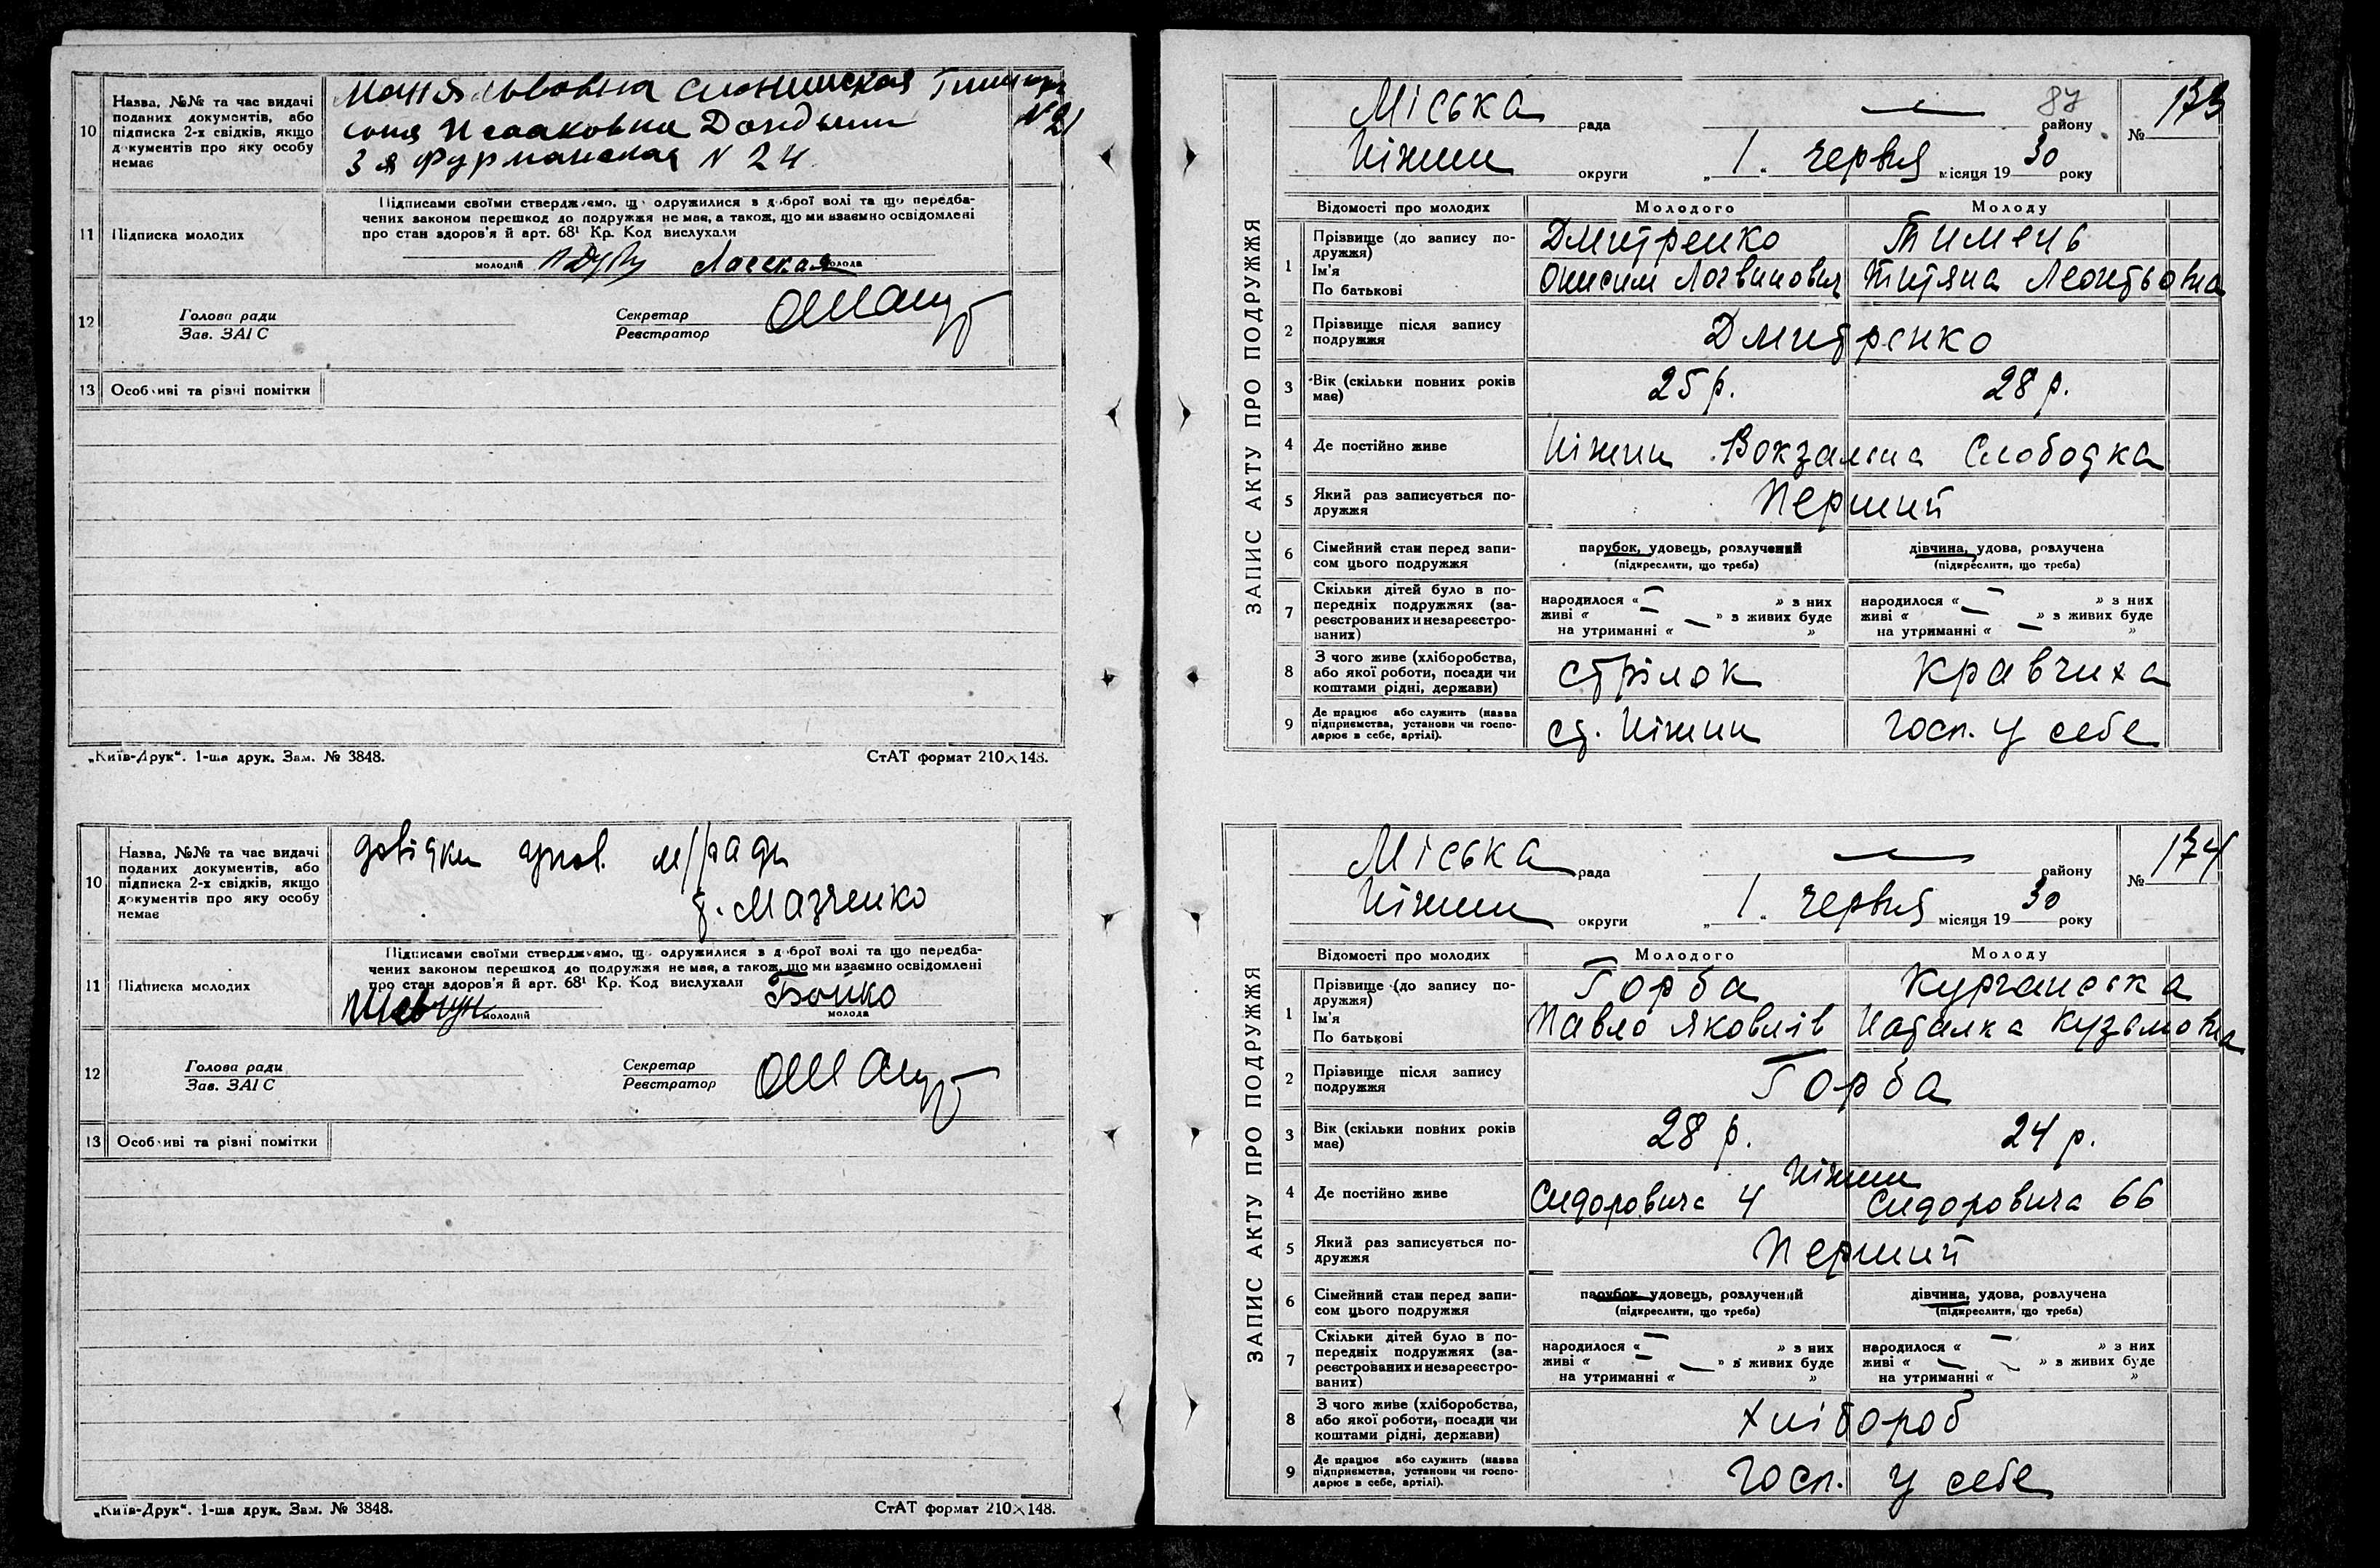 10
Назва, №№ та час видачі
поданих документів, або
підписка 2-х свідків, якщо
документів про яку особу
немає
Маня Львовна Слонимская
N 21
Соня Исааковна
3 я Фурманская N 24
11
Підписка молодих
Підписами своїми стверджуємо, що одружилися з доброї волі та що передба-
чених законом перешкод до подружжя не має, а також, що ми взаємно освідомлені
про стан здоров'я й арт. 68¹ Кр. Код вислухали
молодий
Ласская
молода
12
Голова ради
Зав. ЗАГС
Секретар
Реєстратор
13
Особливі та різні помітки
„Київ-Друк“. 1-ша друк. Зам. № 3848.
СтАТ формат 210×148.
10
Назва, №№ та час видачі
поданих документів, або
підписка 2-х свідків, якщо
документів про яку особу
немає
довідки упов. м/ради
т. Мазченко
11
Підписка молодих
Підписами своїми стверджуємо, що одружилися з доброї волі та що передба-
чених законом перешкод до подружжя не має, а також, що ми взаємно освідомлені
про стан здоров'я й арт. 68¹ Кр. Код вислухали
Шевчун
молодий
Бойко
молода
12
Голова ради
Зав. ЗАГС
Секретар
Реєстратор
13
Особливі та різні помітки
„Київ-Друк“. 1-ша друк. Зам. № 3848.
СтАТ формат 210×148.
ЗАПИС АКТУ ПРО ПОДРУЖЖЯ
Міська рада — району 87 № 173
Ніжин округи „ 1 . червня місяця 19 30 року
Відомості про молодих
Молодого
Молоду
1
Прізвище (до запису по-
дружжя)
Ім'я
По батькові
Дмитренко
Онисим Логвинович
Тимець
Титяна Леонтьовна
2
Прізвище після запису
подружжя
Дмитренко
3
Вік (скільки повних років
має)
25 р.
28 р.
4
Де постійно живе
Ніжин Вокзальна Слободка
5
Який раз записується по-
дружжя
Перший
6
Сімейний стан перед запи-
сом цього подружжя
парубок, удовець, розлучений
(підкреслити, що треба)
дівчина, удова, розлучена
(підкреслити, що треба)
7
Скільки дітей було в по-
передніх подружжях (за-
реєстрованих и незареєстро-
ваних)
народилося « — » з них
живі « — » з живих буде
на утриманні « — »
народилося « — » з них
живі « — » з живих буде
на утриманні « — »
8
З чого живе (хліборобства,
або якої роботи, посади чи
коштами рідні, держави)
стрілок
кравчиха
9
Де працює або служить (назва
підприємства, установи чи госпо-
дарює в себе, артілі).
ст. Ніжин
Госп. у себе
ЗАПИС АКТУ ПРО ПОДРУЖЖЯ
Міська рада — району № 174
Ніжин округи „ 1 . червня місяця 19 30 року
Відомості про молодих
Молодого
Молоду
1
Прізвище (до запису по-
дружжя)
Ім'я
По батькові
Горба
Павло Яковлів
Курганська
Наталка Кузьмовна
2
Прізвище після запису
подружжя
Горба
3
Вік (скільки повних років
має)
28 р.
24 р.
4
Де постійно живе
Ніжин
Сидоровича 4
Сидоровича 66
5
Який раз записується по-
дружжя
Перший
6
Сімейний стан перед запи-
сом цього подружжя
парубок, удовець, розлучений
(підкреслити, що треба)
дівчина, удова, розлучена
(підкреслити, що треба)
7
Скільки дітей було в по-
передніх подружжях (за-
реєстрованих и незареєстро-
ваних)
народилося « — » з них
живі « — » з живих буде
на утриманні « — »
народилося « — » з них
живі « — » з живих буде
на утриманні « — »
8
З чого живе (хліборобства,
або якої роботи, посади чи
коштами рідні, держави)
Хлібороб
9
Де працює або служить (назва
підприємства, установи чи госпо-
дарює в себе, артілі).
Госп. у себе